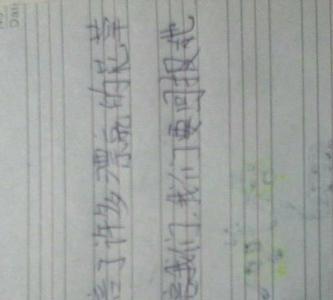 了许多漂亮的花草
我们,我们要回报她